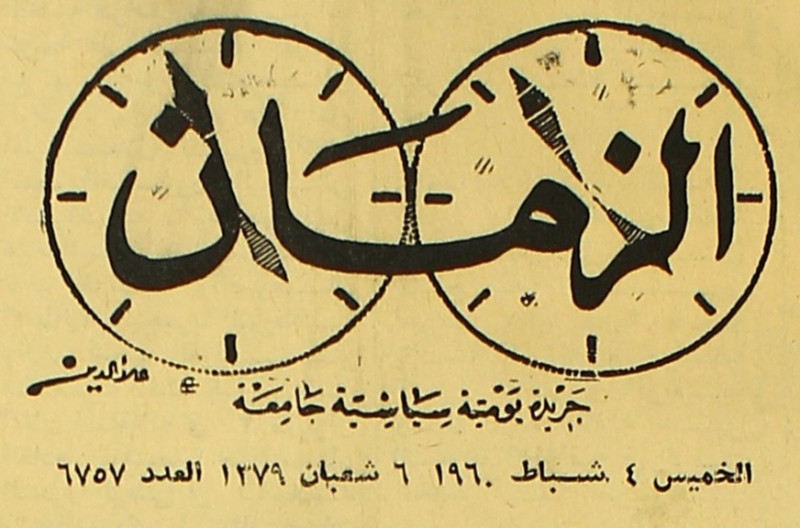 الزمان
علاء الدين
جريدة يومية سياسية جامعة
الخميس ٤ شباط ١٩٦٠ ٦ شعبان ١٣٧٩ العدد ٦٧٥٧